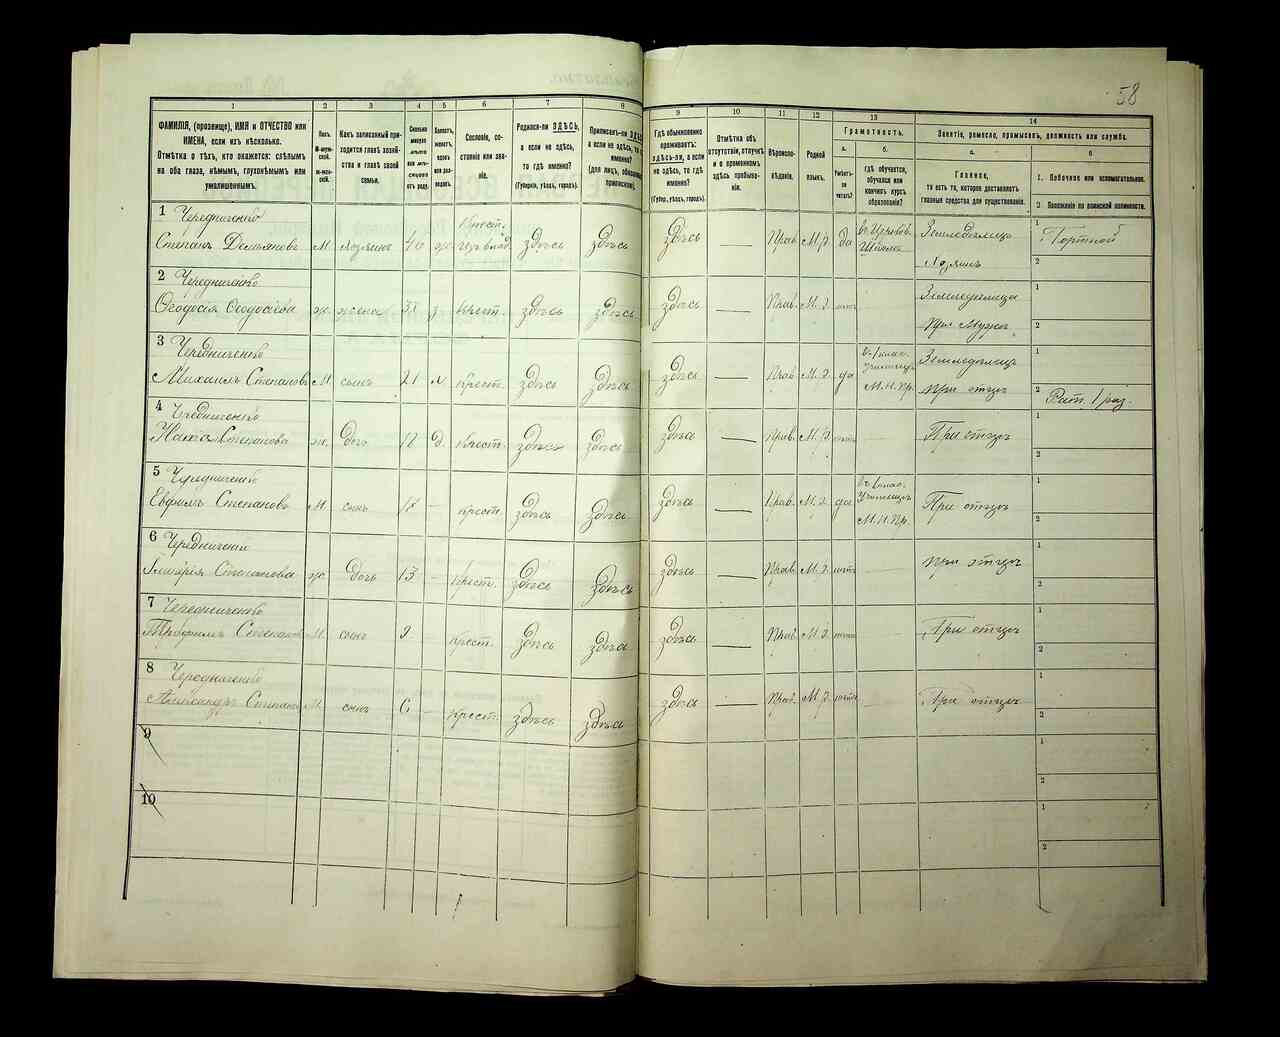 58
1 2 3 4 5 6 7 8 9 10 11 12 13 14
ФАМИЛІЯ, (прозвище), ИМЯ и ОТЧЕСТВО или
ИМЕНА, если ихъ нѣсколько.
Отмѣтка о тѣхъ, кто окажется: слѣпымъ
на оба глаза, нѣмымъ, глухонѣмымъ или
умалишеннымъ.
Полъ.
М-муж-
ской.
Ж-жен-
скій.
Какъ записанный при-
ходится главѣ хозяй-
ства и главѣ своей
семьи.
Сколько
минуло
лѣтъ
или мѣ-
сяцевъ
отъ роду.
Холостъ,
женатъ,
вдовъ
или раз-
веденъ.
Сословіе, со-
стояніе или зва-
ніе.
Родился-ли ЗДѢСЬ,
а если не здѣсь,
то гдѣ именно?
(Губернія, уѣздъ, городъ).
Приписанъ-ли ЗДѢСЬ,
а если не здѣсь, то гдѣ
именно?
(для лицъ, обязанныхъ
припискою).
Гдѣ обыкновенно
проживаетъ:
здѣсь-ли, а если
не здѣсь, то гдѣ
именно?
(Губер., уѣздъ, городъ).
Отмѣтка объ
отсутствіи, отлучкѣ
и о временномъ
здѣсь пребыва-
ніи.
Вѣроиспо-
вѣданіе.
Родной
языкъ.
Грамотность.
а.
Умѣетъ-ли
читать?
б.
гдѣ обучается,
обучался или
кончилъ курсъ
образованія?
Занятіе, ремесло, промыселъ, должность или служба.
а.
Главное,
то есть то, которое доставляетъ
главныя средства для существованія.
б
1. Побочное или вспомогательное.
2 Положеніе по воинской повинности.
1 Чередниченко
Степанъ Демьяновъ М. Хозяинъ 46 ж Крест. здѣсь здѣсь здѣсь Прав. М.Р. да въ Церковн. Школѣ Земледѣлецъ Хозяинъ 1 Портной 2
2 Чередниченко
Ѳеодосія Ѳеодосіева ж. жена з Крест. здѣсь здѣсь здѣсь — Прав. М.Р. нѣтъ Земледѣлица При Мужѣ 1 2
3 Чередниченко
Михаилъ Степановъ М. сынъ 21 х крест. здѣсь здѣсь здѣсь — Прав. М.Р. да въ 1 клас. Училищѣ М.Н.Пр. Земледѣлецъ При отцѣ 1 2 Рат. 1 раз.
4 Чередниченко
Степанова ж. дочь Д. Крест. здѣсь здѣсь здѣсь — Прав. М.Р. нѣтъ — При отцѣ 1 2
5 Чередниченко
Евфимъ Степановъ М. сынъ — крест. здѣсь здѣсь здѣсь — Прав. М.Р. да въ 1 клас. Училищѣ М.Н.Пр. При отцѣ 1 2
6 Чередниченко
Гликерія Степанова ж. дочь 13 — Крест. здѣсь здѣсь здѣсь — Прав. М.Р. нѣтъ — При отцѣ 1 2
7 Чередниченко
Трофимъ Степановъ М. сынъ 9 — крест. здѣсь здѣсь здѣсь — Прав. М.Р. нѣтъ — При отцѣ 1 2
8 Чередниченко
Александръ Степановъ М. сынъ 6 — Крест. здѣсь здѣсь здѣсь — Прав. М.Р. нѣтъ — При отцѣ 1 2
9 1 2
10 1 2